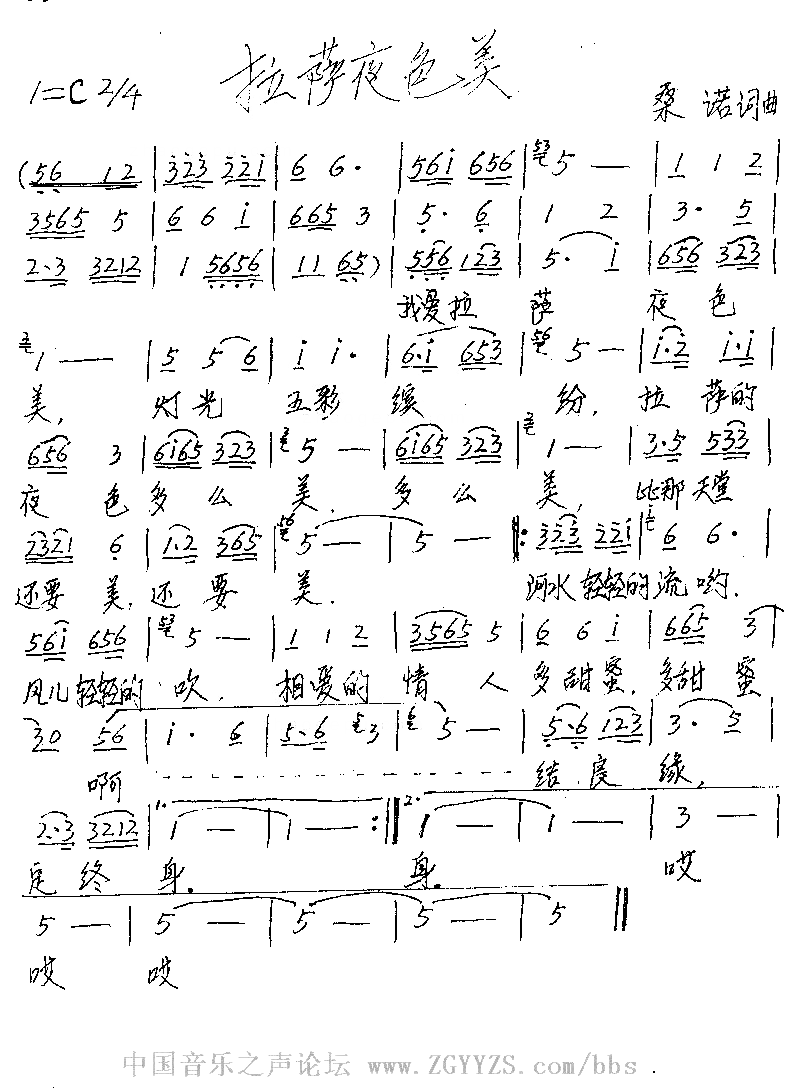 拉萨夜色美
1=C 2/4
桑诺词曲
(56 12 | 323 221 | 6 6· | 561 656 | 5 — | 1 1 2 |
3565 5 | 6 6 1 | 665 3 | 5· 6 | 1 2 | 3· 5 |
2·3 3212 | 1 5656 | 11 65) | 556 123 | 5· 1 | 656 323 |
我爱拉 萨 夜 色
1 — | 5 5 6 | 1 1· | 6·1 653 | 5 — | 1·2 1·1 |
美, 灯光 五彩 缤 纷, 拉 萨的
656 3 | 6165 323 | 5 — | 6165 323 | 1 — | 3·5 533 |
夜 色 多 么 美, 多 么 美, 比那天堂
2321 6 | 1·2 365 | 5 — | 5 — ‖: 323 221 | 6 6· |
还要 美, 还 要 美. 河水轻轻的流哟.
561 656 | 5 — | 1 1 2 | 3565 5 | 6 6 1 | 665 3 |
风儿轻轻的 吹, 相爱的 情 人 多甜蜜, 多甜 蜜
30 56 | 1· 6 | 5·6 3 | 5 — | 5·6 123 | 3· 5 |
啊 结 良 缘,
2·3 3212 | 1. 1 — | 1 — :‖ 2. 1 — | 1 — | 3 — |
定 终 身. 身. 哎
5 — | 5 — | 5 — | 5 — | 5 ‖
哎 哎
中国音乐之声论坛 www.ZGYYZS.com/bbs